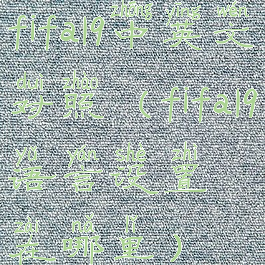 fifa19中英文
对照(fifa19
语言设置
在哪里)